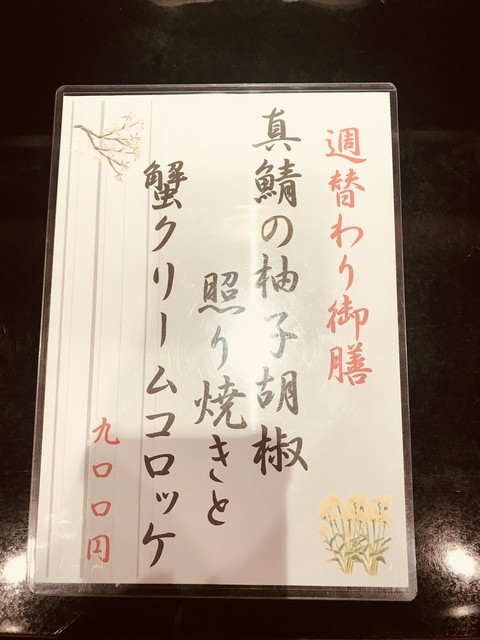 週替わり御膳
真鯖の柚子胡椒
照り焼きと
蟹クリームコロッケ
九口口円